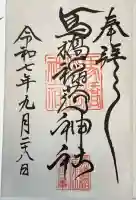 奉拝
馬橋稲荷神社
令和七年九月二八日